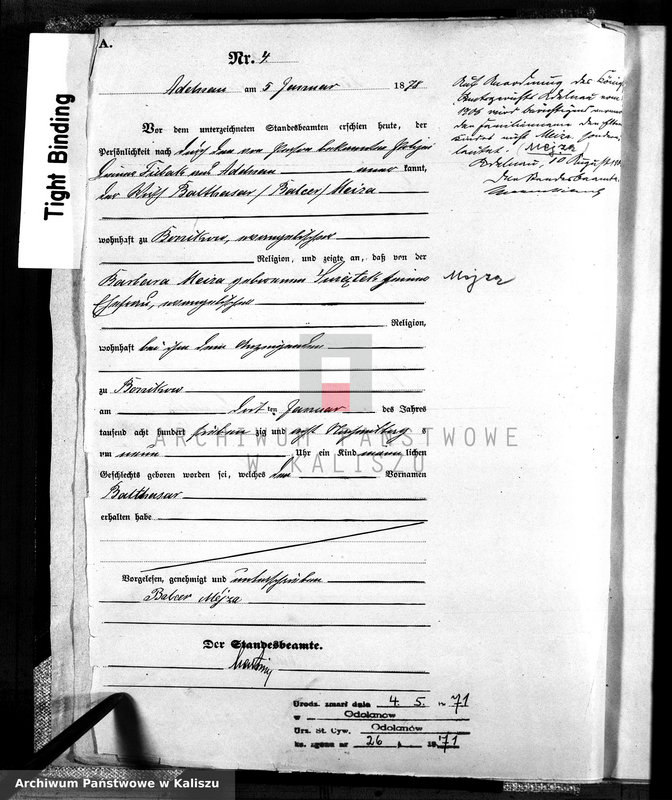 A.
Nr. 4
Adelnau am 5 Januar 1878
Tight Binding
Vor dem unterzeichneten Standesbeamten erschien heute, der
Persönlichkeit nach durch den von Person bekannten
aus Adelnau kannt,
der Balthasar / Balcer / Meiza
wohnhaft zu Bonikow, evangelischer
Religion, und zeigte an, daß von der
Barbara Meiza geborenen seiner
Ehefrau, evangelischer
Religion,
wohnhaft bei ihm dem Anzeigenden
zu Bonikow
am ten Januar des Jahres
tausend acht hundert sieben zig und acht Nachmittag s
um neun Uhr ein Kind männlichen
Geschlechts geboren worden sei, welches den Vornamen
Balthasar
erhalten habe
Vorgelesen, genehmigt und unterschrieben
Balcer Mejza
Der Standesbeamte.
Auf Anordnung des König.
Amtsgerichts Adelnau vom
1906 wird berichtigend
der Familienname des
Kindes nicht Meiza sondern
lautet. (Mejza)
Adelnau, 10 August
Der Standesbeamte.
Mejza
ARCHIWUM PAŃSTWOWE
W KALISZU
Urodz. zmarł dnia 4. 5. 1971
w Odolanów
Urz. St. Cyw. Odolanów
ks. zgonu nr 26 1971
Archiwum Państwowe w Kaliszu